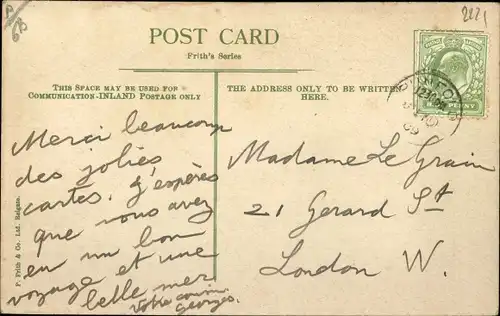 2221
POST CARD
Frith's Series
THIS SPACE MAY BE USED FOR
COMMUNICATION-INLAND POSTAGE ONLY
THE ADDRESS ONLY TO BE WRITTEN
HERE.
Merci beaucoup
des jolies
cartes. J'espères
que vous avez
eu un bon
voyage et une
belle mer
Votre cousin
Georges.
Madame Le Grain
21 Gerard St
London W.
F. Frith & Co. Ltd. Reigate.